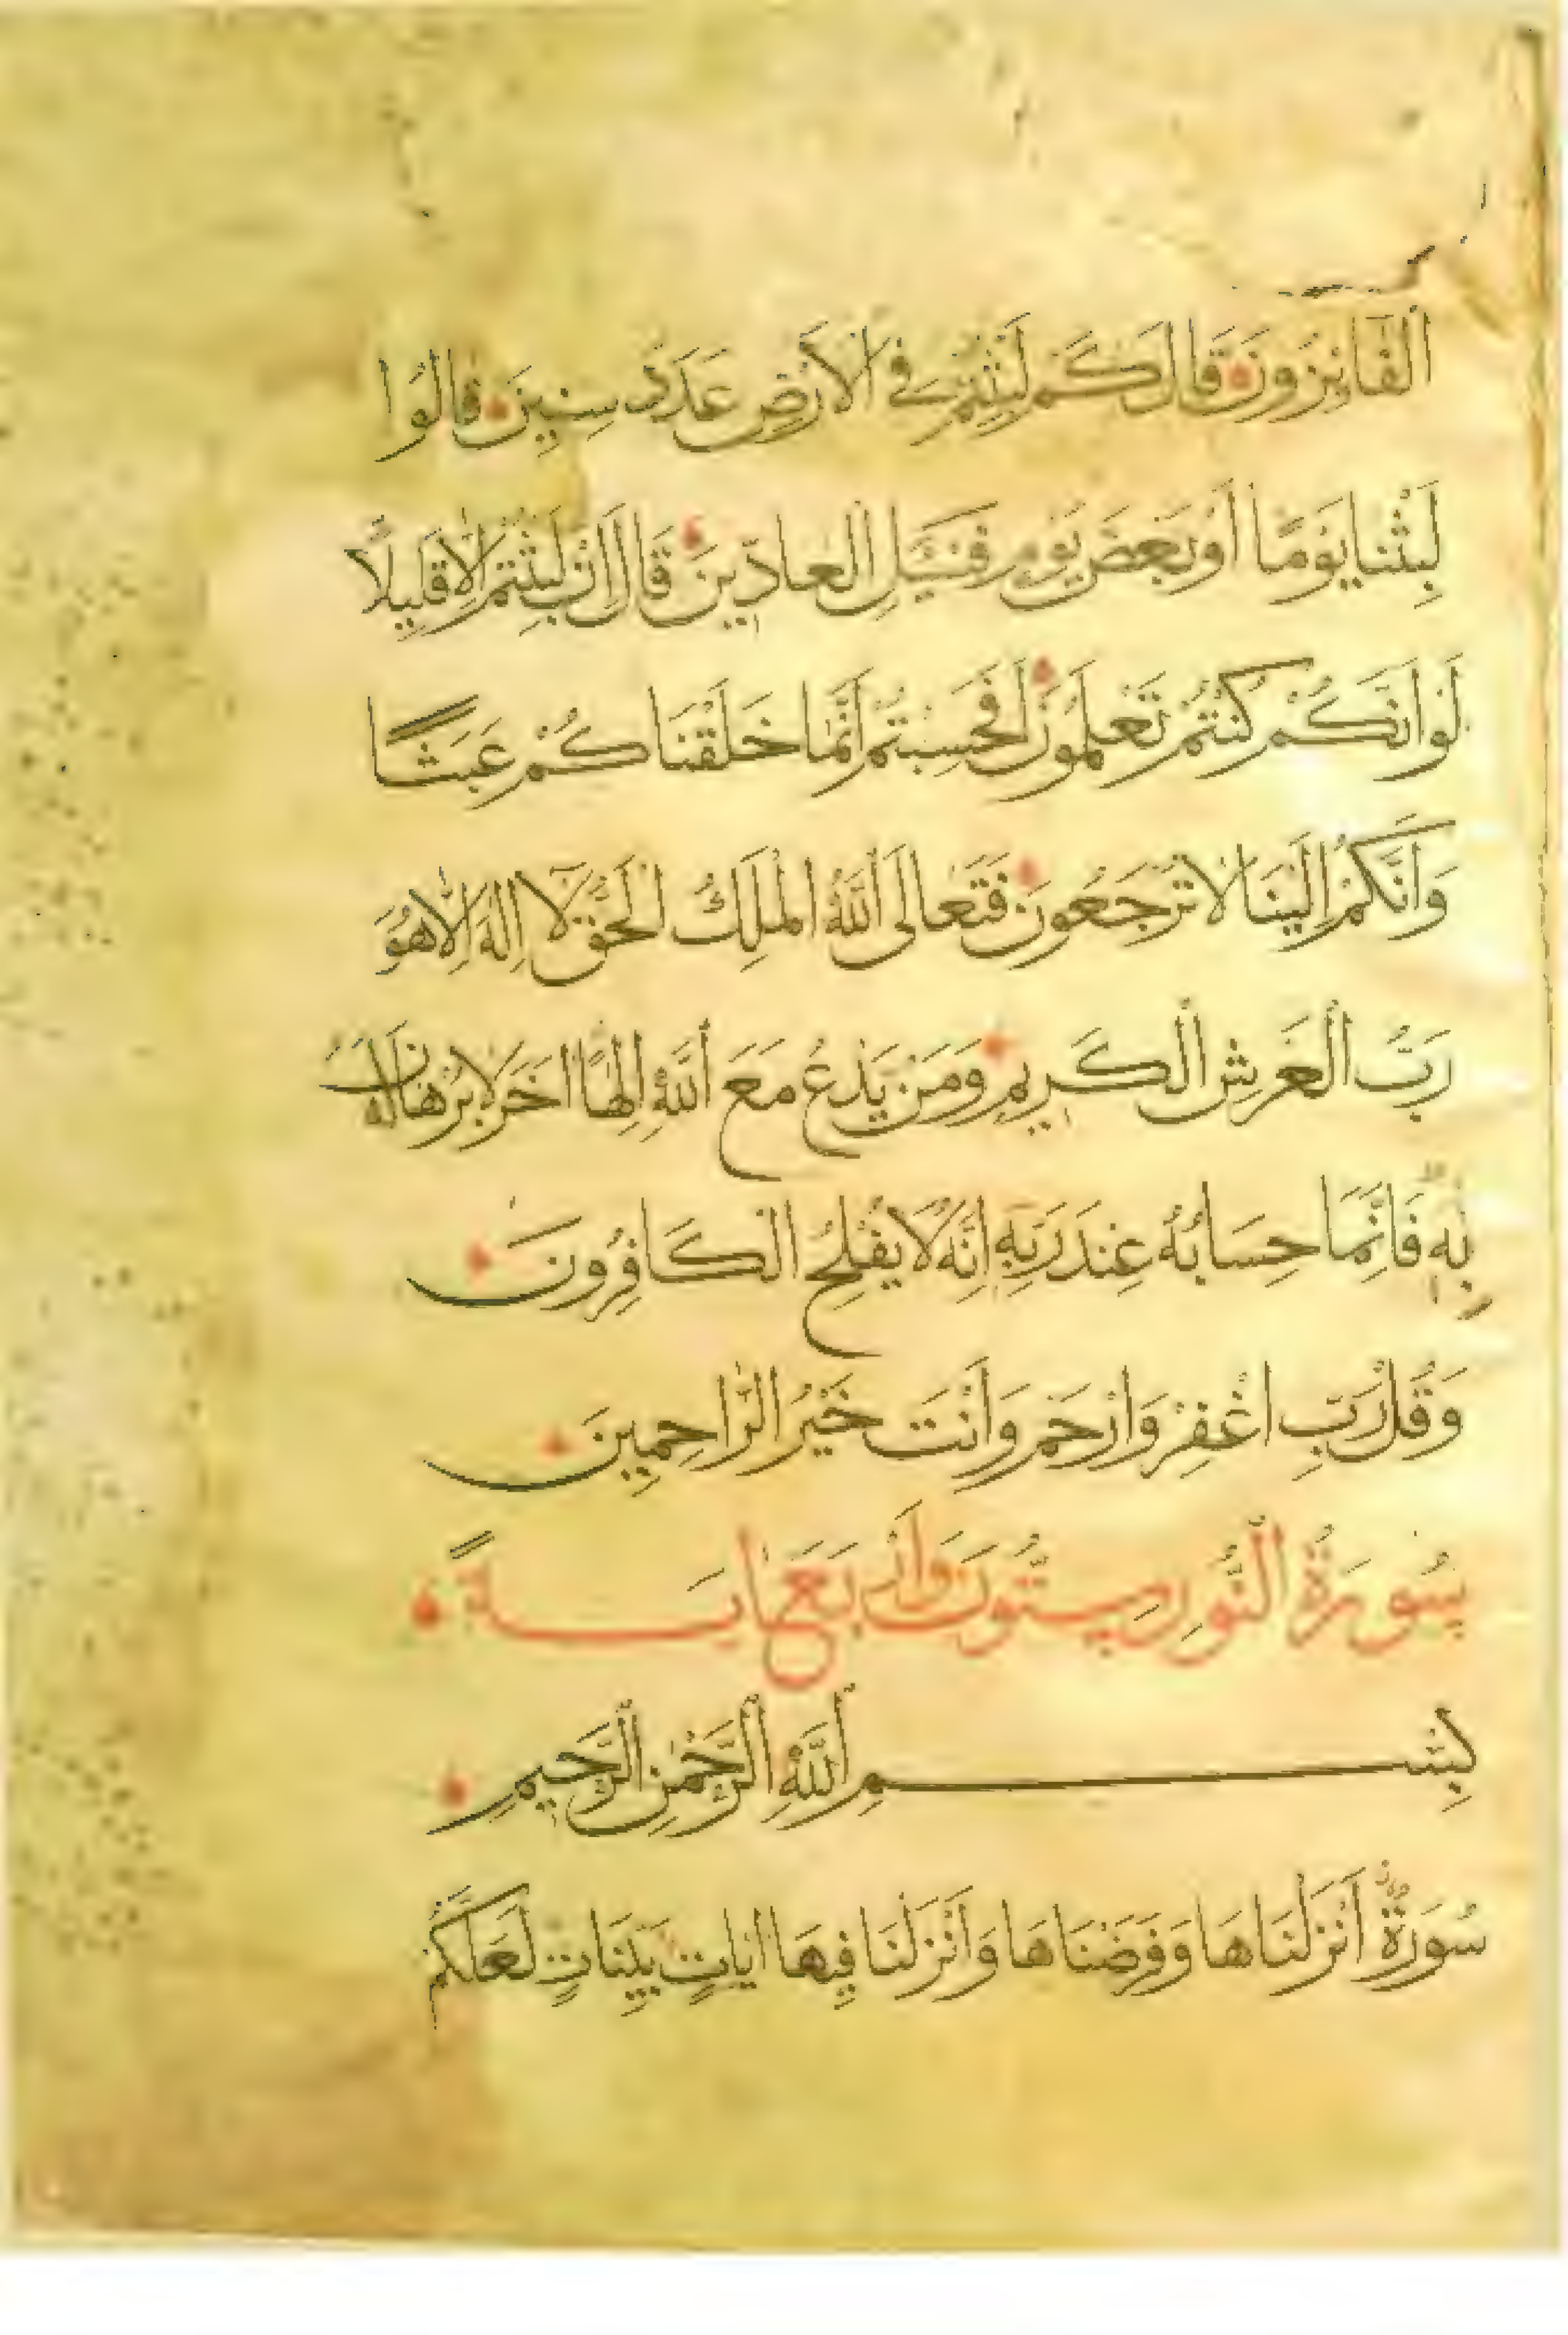 الْفَائِزُونَ قَالَ كَمْ لَبِثْتُمْ فِي الْأَرْضِ عَدَدَ سِنِينَ قَالُوا
لَبِثْنَا يَوْمًا أَوْ بَعْضَ يَوْمٍ فَسْئَلِ الْعَادِّينَ قَالَ إِنْ لَبِثْتُمْ إِلَّا قَلِيلًا
لَوْ أَنَّكُمْ كُنْتُمْ تَعْلَمُونَ أَفَحَسِبْتُمْ أَنَّمَا خَلَقْنَاكُمْ عَبَثًا
وَأَنَّكُمْ إِلَيْنَا لَا تُرْجَعُونَ فَتَعَالَى اللَّهُ الْمَلِكُ الْحَقُّ لَا إِلَهَ إِلَّا هُوَ
رَبُّ الْعَرْشِ الْكَرِيمِ وَمَنْ يَدْعُ مَعَ اللَّهِ إِلَهًا آخَرَ لَا بُرْهَانَ لَهُ
بِهِ فَإِنَّمَا حِسَابُهُ عِنْدَ رَبِّهِ إِنَّهُ لَا يُفْلِحُ الْكَافِرُونَ
وَقُلْ رَبِّ اغْفِرْ وَارْحَمْ وَأَنْتَ خَيْرُ الرَّاحِمِينَ
سُورَةُ النُّورِ سِتُّونَ وَأَرْبَعُ آيَةً
بِسْمِ اللَّهِ الرَّحْمٰنِ الرَّحِيمِ
سُورَةٌ أَنْزَلْنَاهَا وَفَرَضْنَاهَا وَأَنْزَلْنَا فِيهَا آيَاتٍ بَيِّنَاتٍ لَعَلَّكُمْ